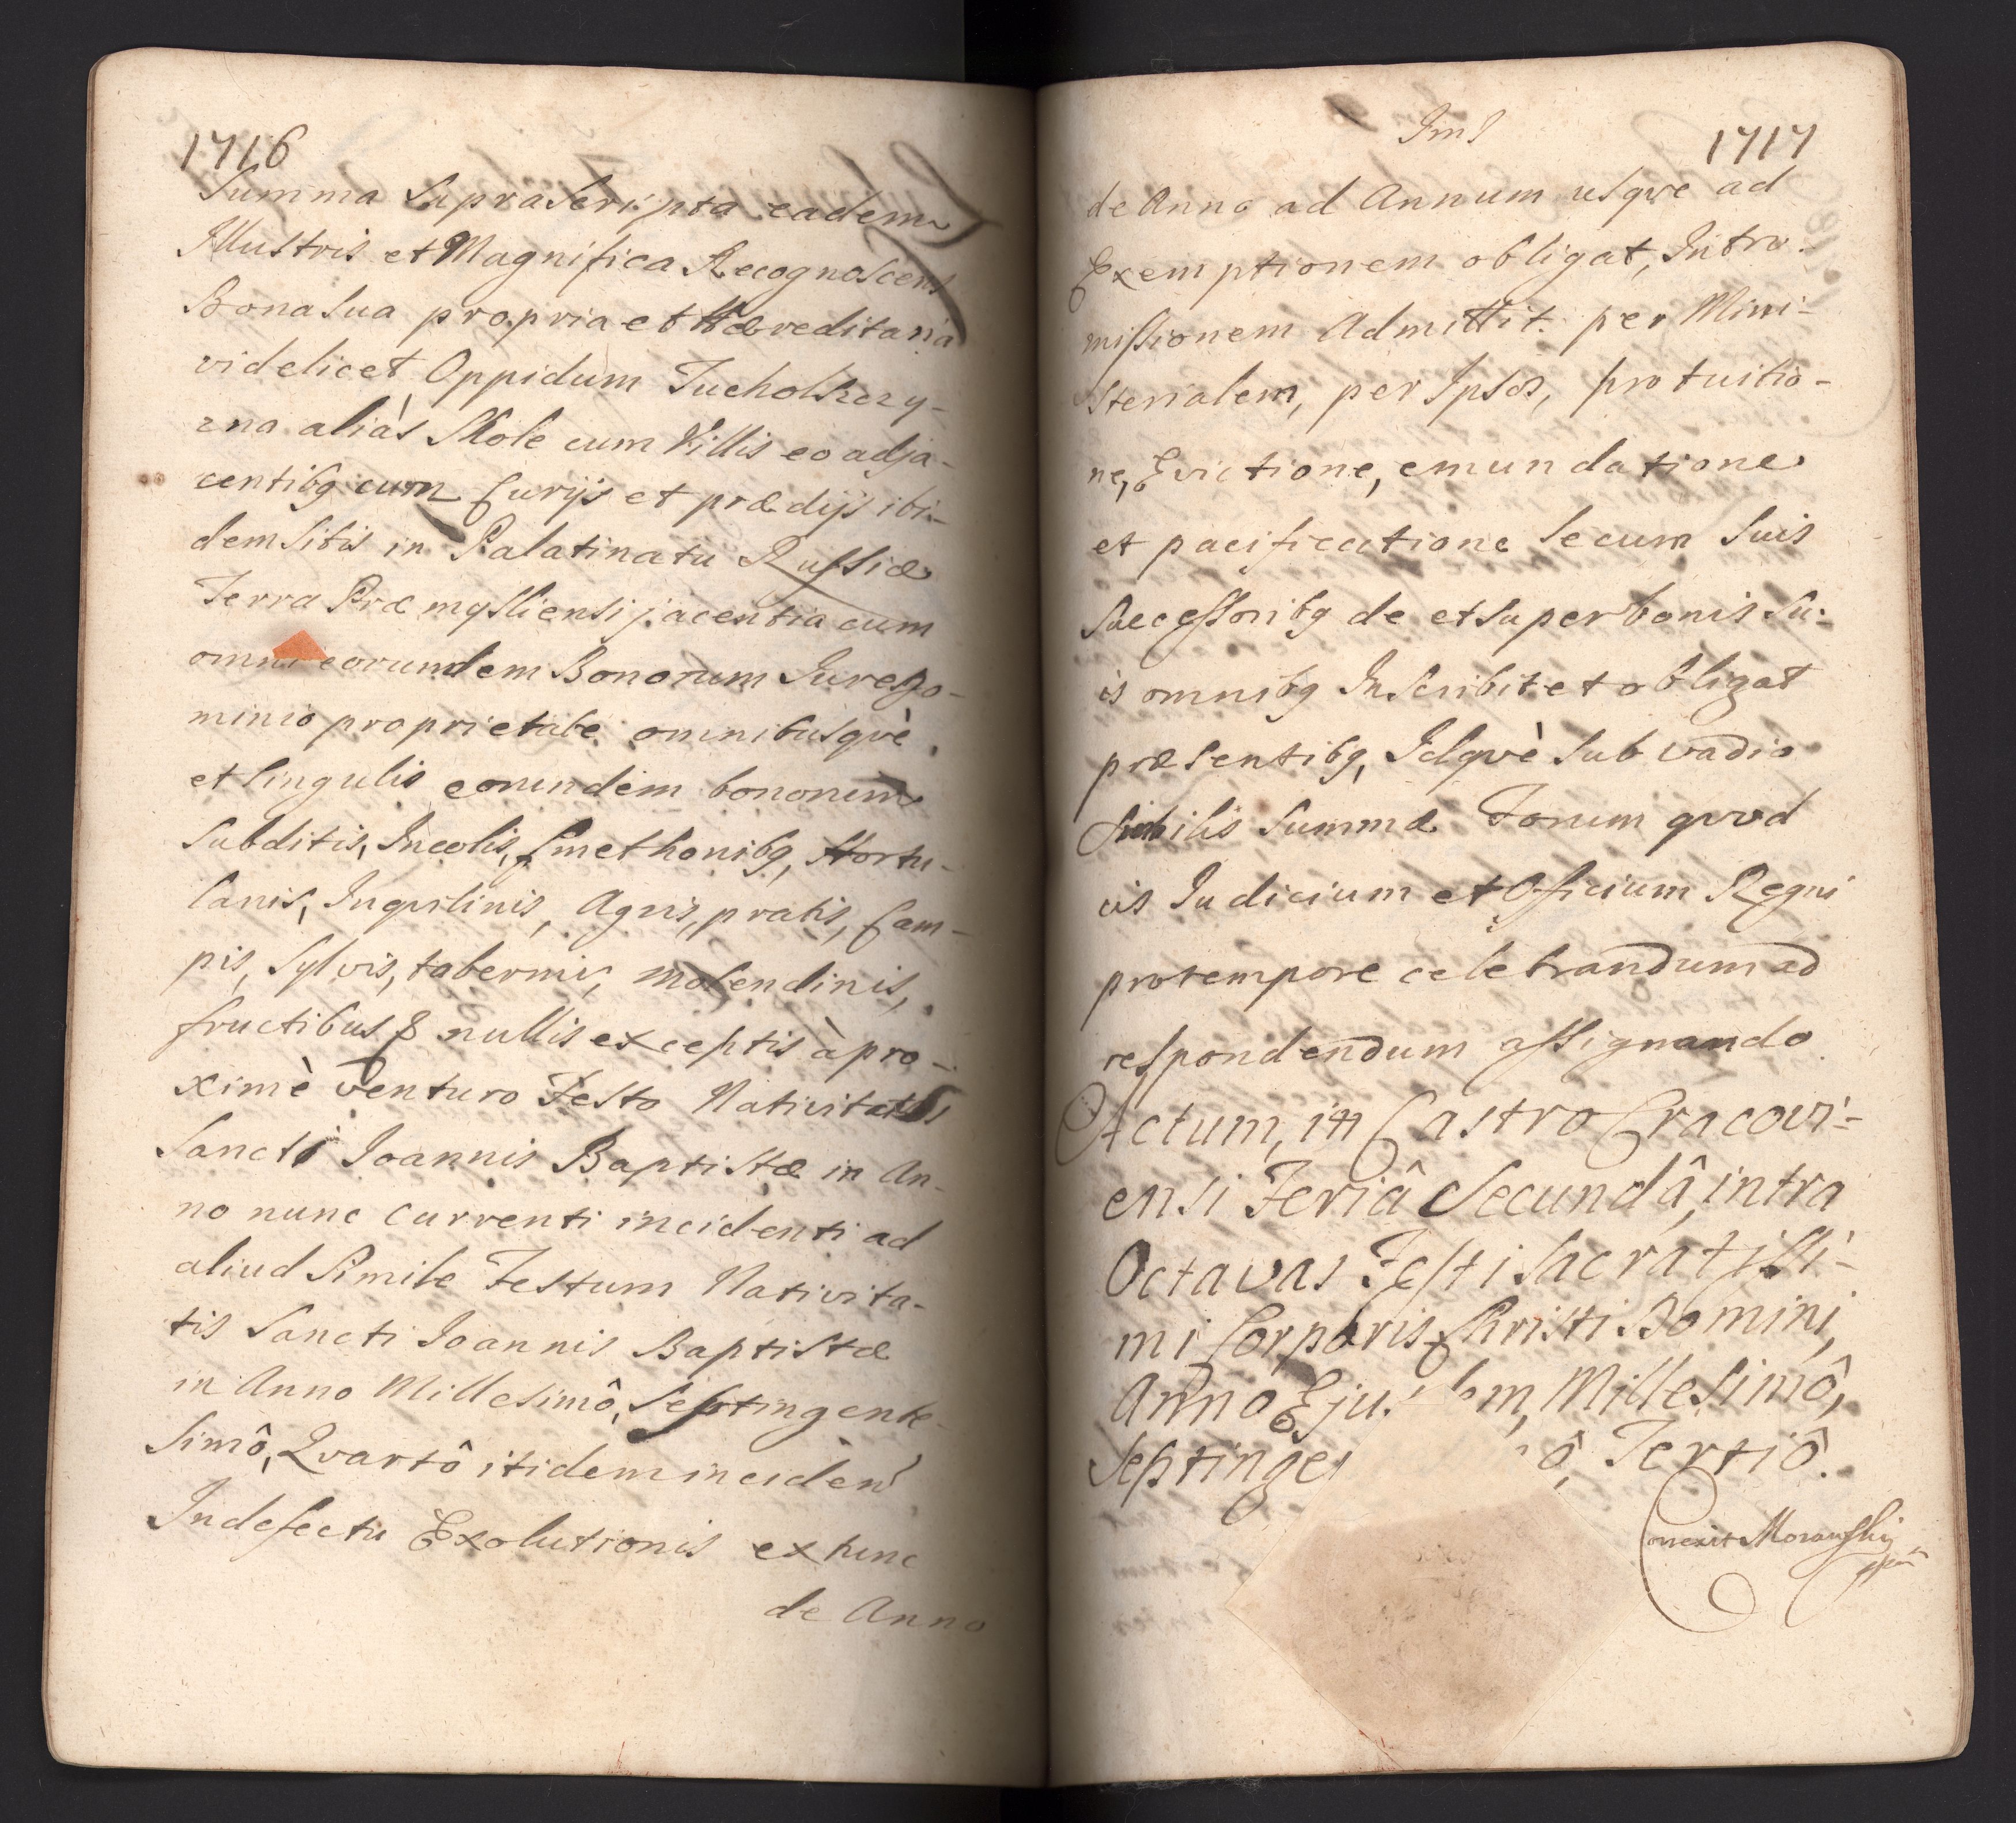 1716
Summa Suprascripta eadem
Illustris et Magnifica Recognoscens
Bona sua propria et Hæreditaria
videlicet Oppidum Tucholkczy-
zna aliàs Skole cum Villis eo adja-
centibq cum Curijs et prædijs ibi-
dem sitis in Palatinatu Russiæ
Terra Præmysliensi jacentia cum
omni eorundem Bonorum Jure Do-
minio proprietate omnibusqvè
et singulis eorundem bonorum
Subditis, Incolis, Cmethonibq, Hortu-
lanis, Inqvilinis, Agris, pratis, Cam-
pis, Sylvis, tabernis, molendinis,
fructibus & nullis exceptis à pro-
ximè venturo Festo Nativitatis
Sancti Joannis Baptistæ in An-
no nunc currenti incidenti ad
aliud simile Festum Nativita-
tis Sancti Joannis Baptistæ
in Anno Millesimô, Septingente-
simô, Qvartô itidem inciden
In defectu Exolutionis ex tunc
de Anno
1717
de Anno ad Annum usqve ad
Exemptionem obligat, Intro-
missionem Admittit per Mini-
sterialem, per Ipsos, pro tuitio-
ne, Evictione, emundatione
et pacificatione secum suis
Successoribq de et super bonis su-
is omnibq Inscribit et obligat
præsentibq, Idqvè sub vadio
similis summæ Forum qvod
cis Judicium et Officium Regni
pro tempore celebrandum ad
respondendum assignando
Actum, in Castro Cracovi-
ensi Feriâ Secundâ, intra
Octavas Festi Sacratissi-
mi Corporis Christi Domini,
Anno Ejusdem, Millesimô,
Septinge ô, Tertiô.